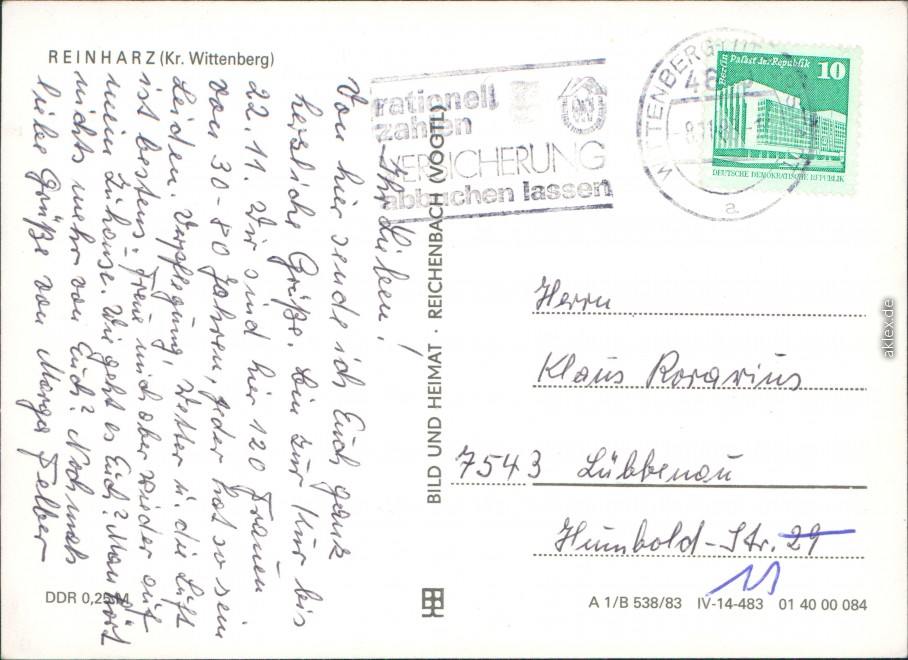 REINHARZ (Kr. Wittenberg)
Ihr Lieben!
Von hier sende ich Euch ganz
herzliche Grüße. bin zur Kur bis
22. 11. Wir sind hier 120 Frauen
von 30 - 80 Jahren, jeder hat so sein
Leiden. Verpflegung, Wetter u. die Luft
ist bestens. Freue mich aber wieder auf
mein zuhause. Wie geht es Euch? Man hört
nichts mehr von Euch? Nochmals
liebe Grüße von Marga Felber
DDR 0,25 M
BILD UND HEIMAT · REICHENBACH (VOGTL)
rationell
zahlen
VERSICHERUNG
abbuchen lassen
WITTENBERG LUTHERSTADT
a
Berlin Palast der Republik
10
DEUTSCHE DEMOKRATISCHE REPUBLIK
Herrn
Klaus Rorarius
7543 Lübbenau
Humbold-Str. 29
11
A 1/B 538/83 IV-14-483 01 40 00 084
aklex.de